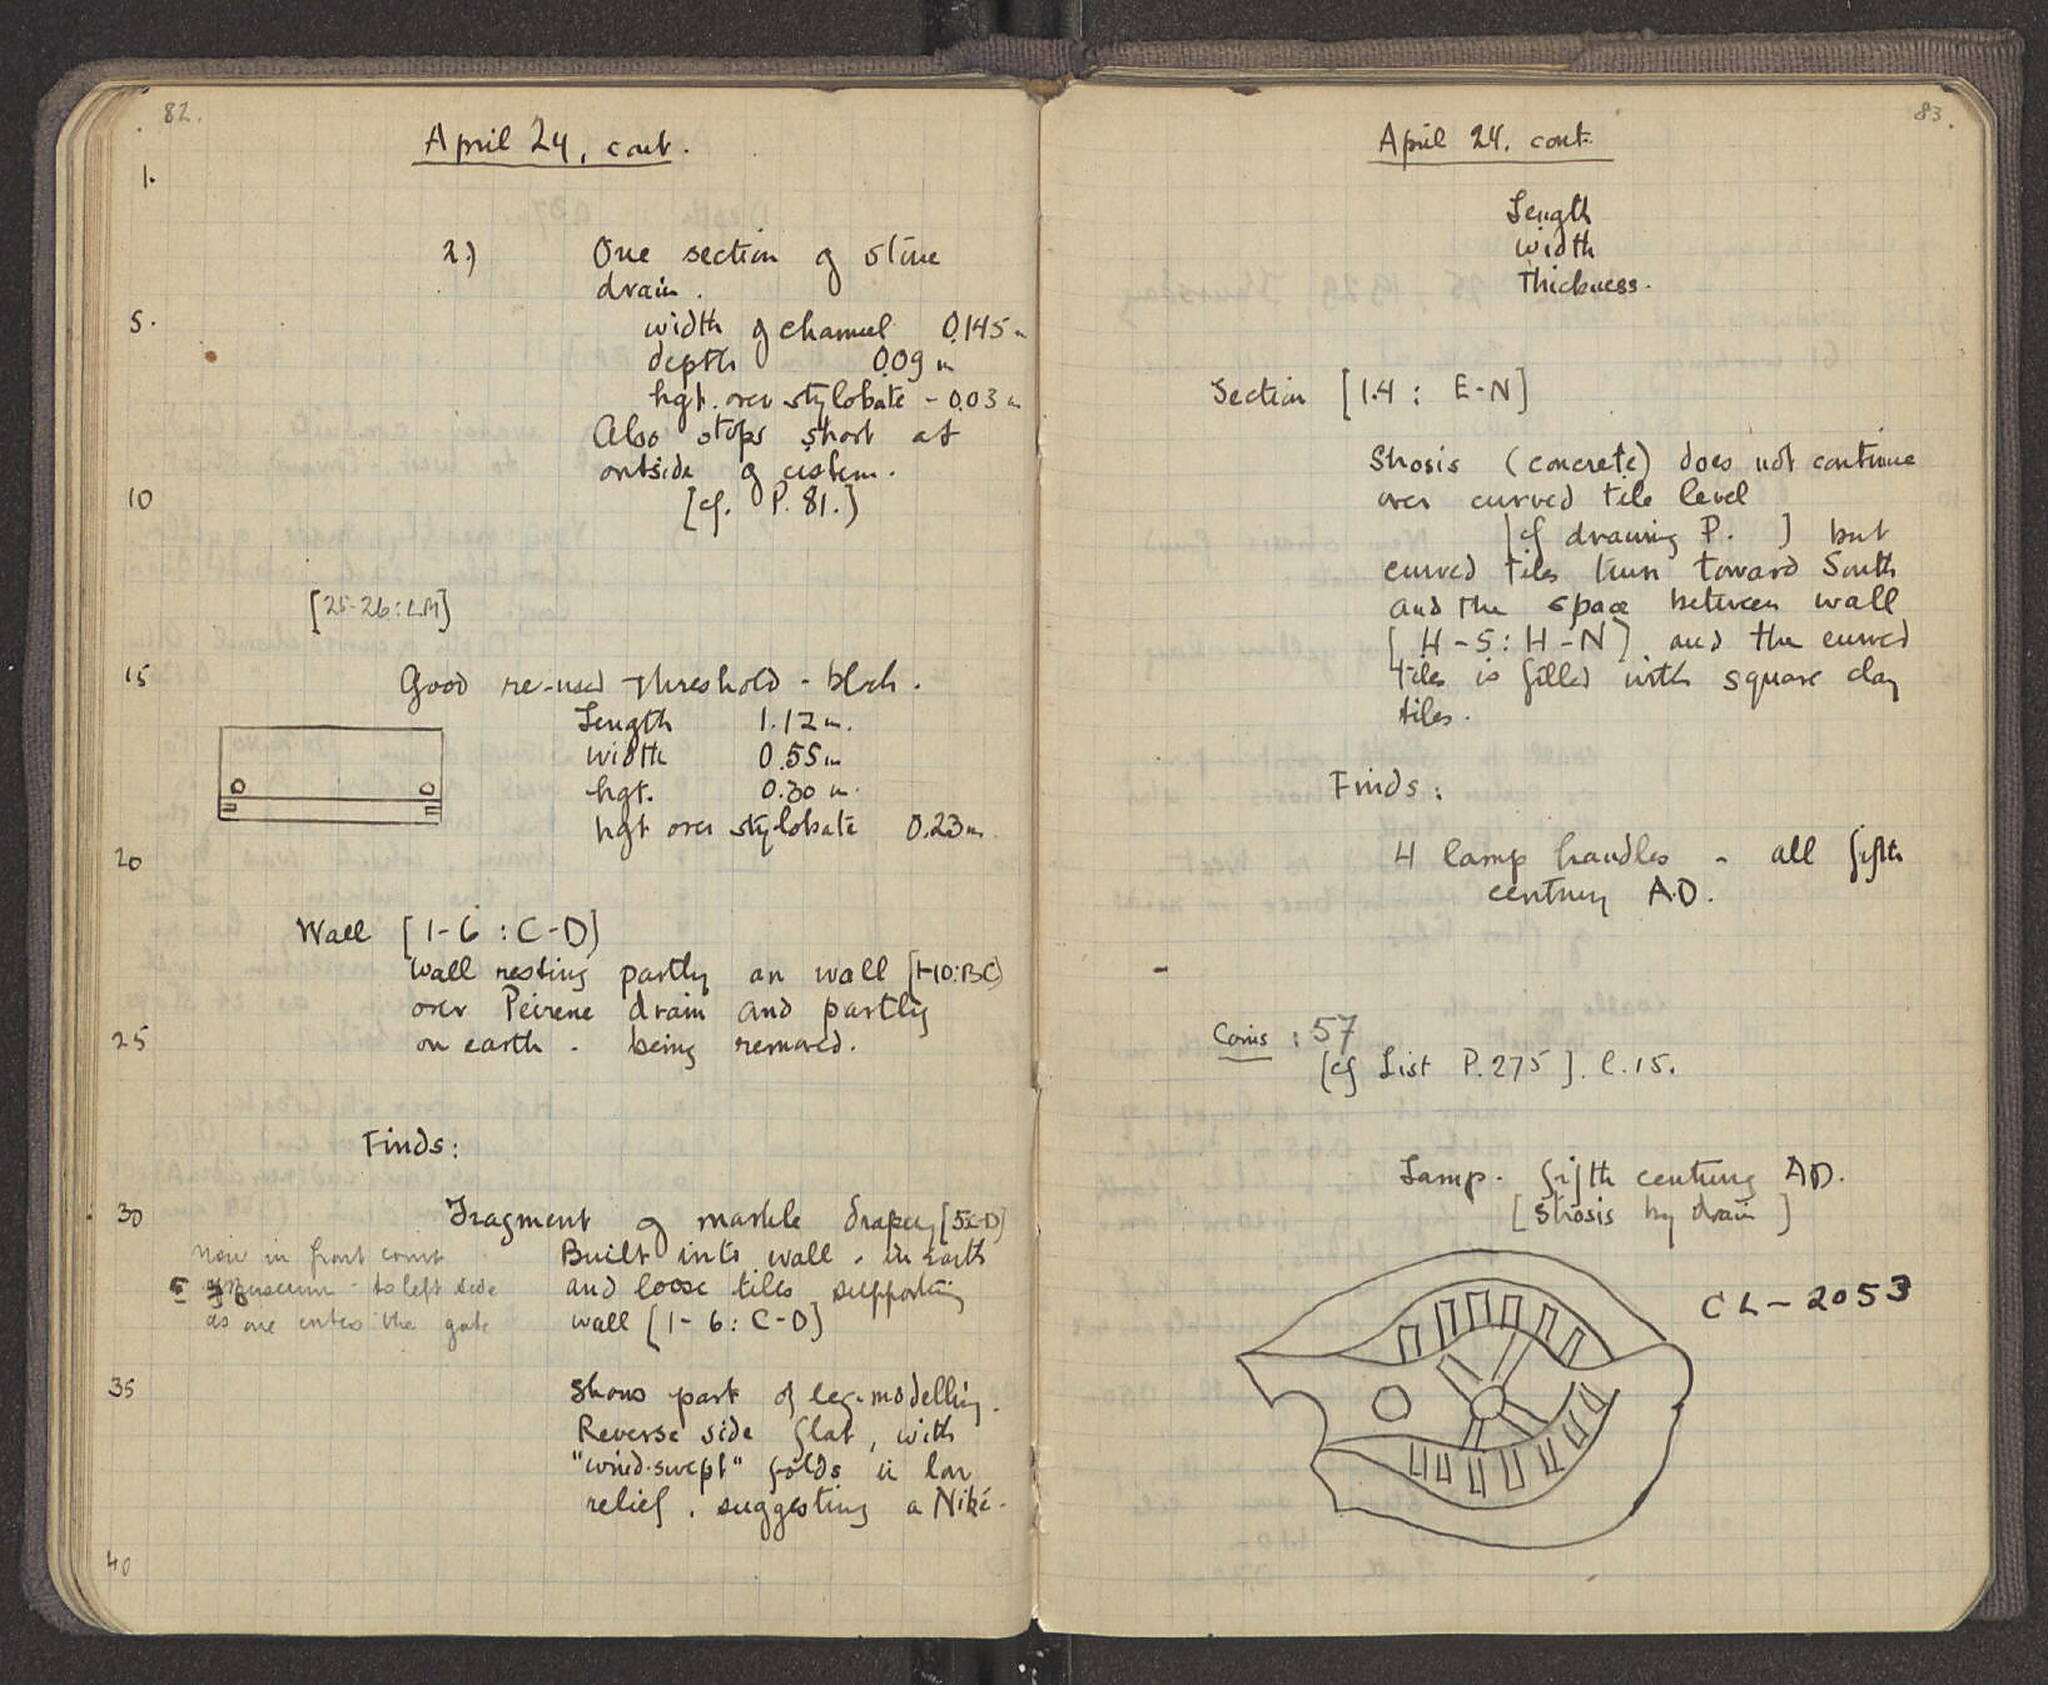 82.
April 24, cont.
1.
2.) One section of stone
drain.
5. width of channel 0.145 m
depth 0.09 m
hgt. over stylobate - 0.03 m
Also stops short at
outside of cistern.
10 [cf. P. 81.]
[25-26: LM]
15 Good re-used threshold-block.
Length 1.12 m.
width 0.55 m
hgt. 0.30 m.
hgt over stylobate 0.23 m.
20
Wall [1-6 : C-D]
Wall resting partly on wall [1-10: BC]
over Peirene drain and partly
25 on earth - being removed.
Finds:
30 Fragment of marble drapery [5:C-D]
Built into wall - in earth
and loose tiles supporting
wall [1-6: C-D]
Now in front court
of museum - to left side
as one enters the gate
35 Shows part of leg-modelling.
Reverse side flat, with
"wind-swept" folds in low
relief, suggesting a Niké.
40
83.
April 24. cont.
Length
width
Thickness.
Section [1.4 : E-N]
Strosis (concrete) does not continue
over curved tile level
[cf drawing P. ] but
curved tiles turn toward South
and the space between wall
[H-S: H-N] and the curved
tiles is filled with square clay
tiles.
Finds:
4 lamp handles - all fifth
century A.D.
Coins : 57
[cf List P. 275]. l. 15.
Lamp. fifth century AD.
[Strosis by drain]
CL-2053